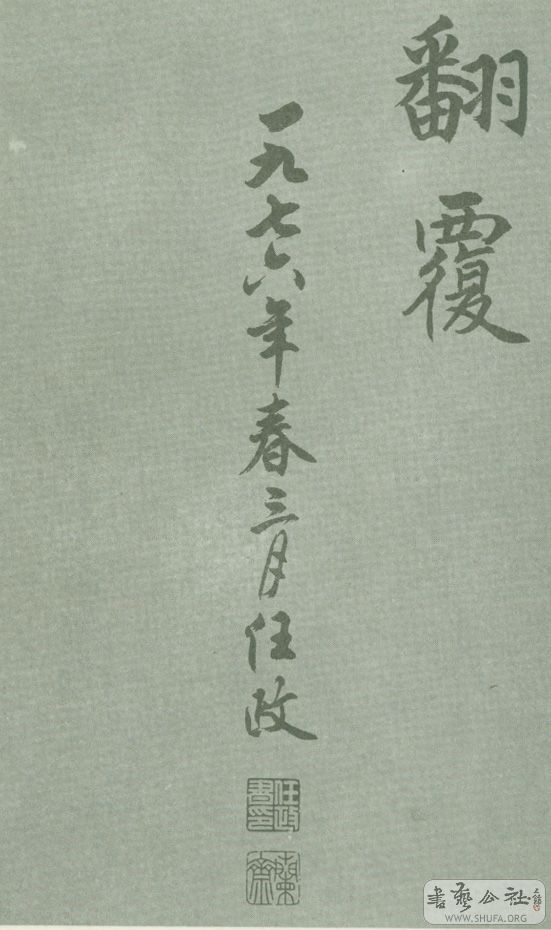 翻覆
一九七六年春三月任政
任政書印
蘭齋
書藝公社
WWW.SHUFA.ORG